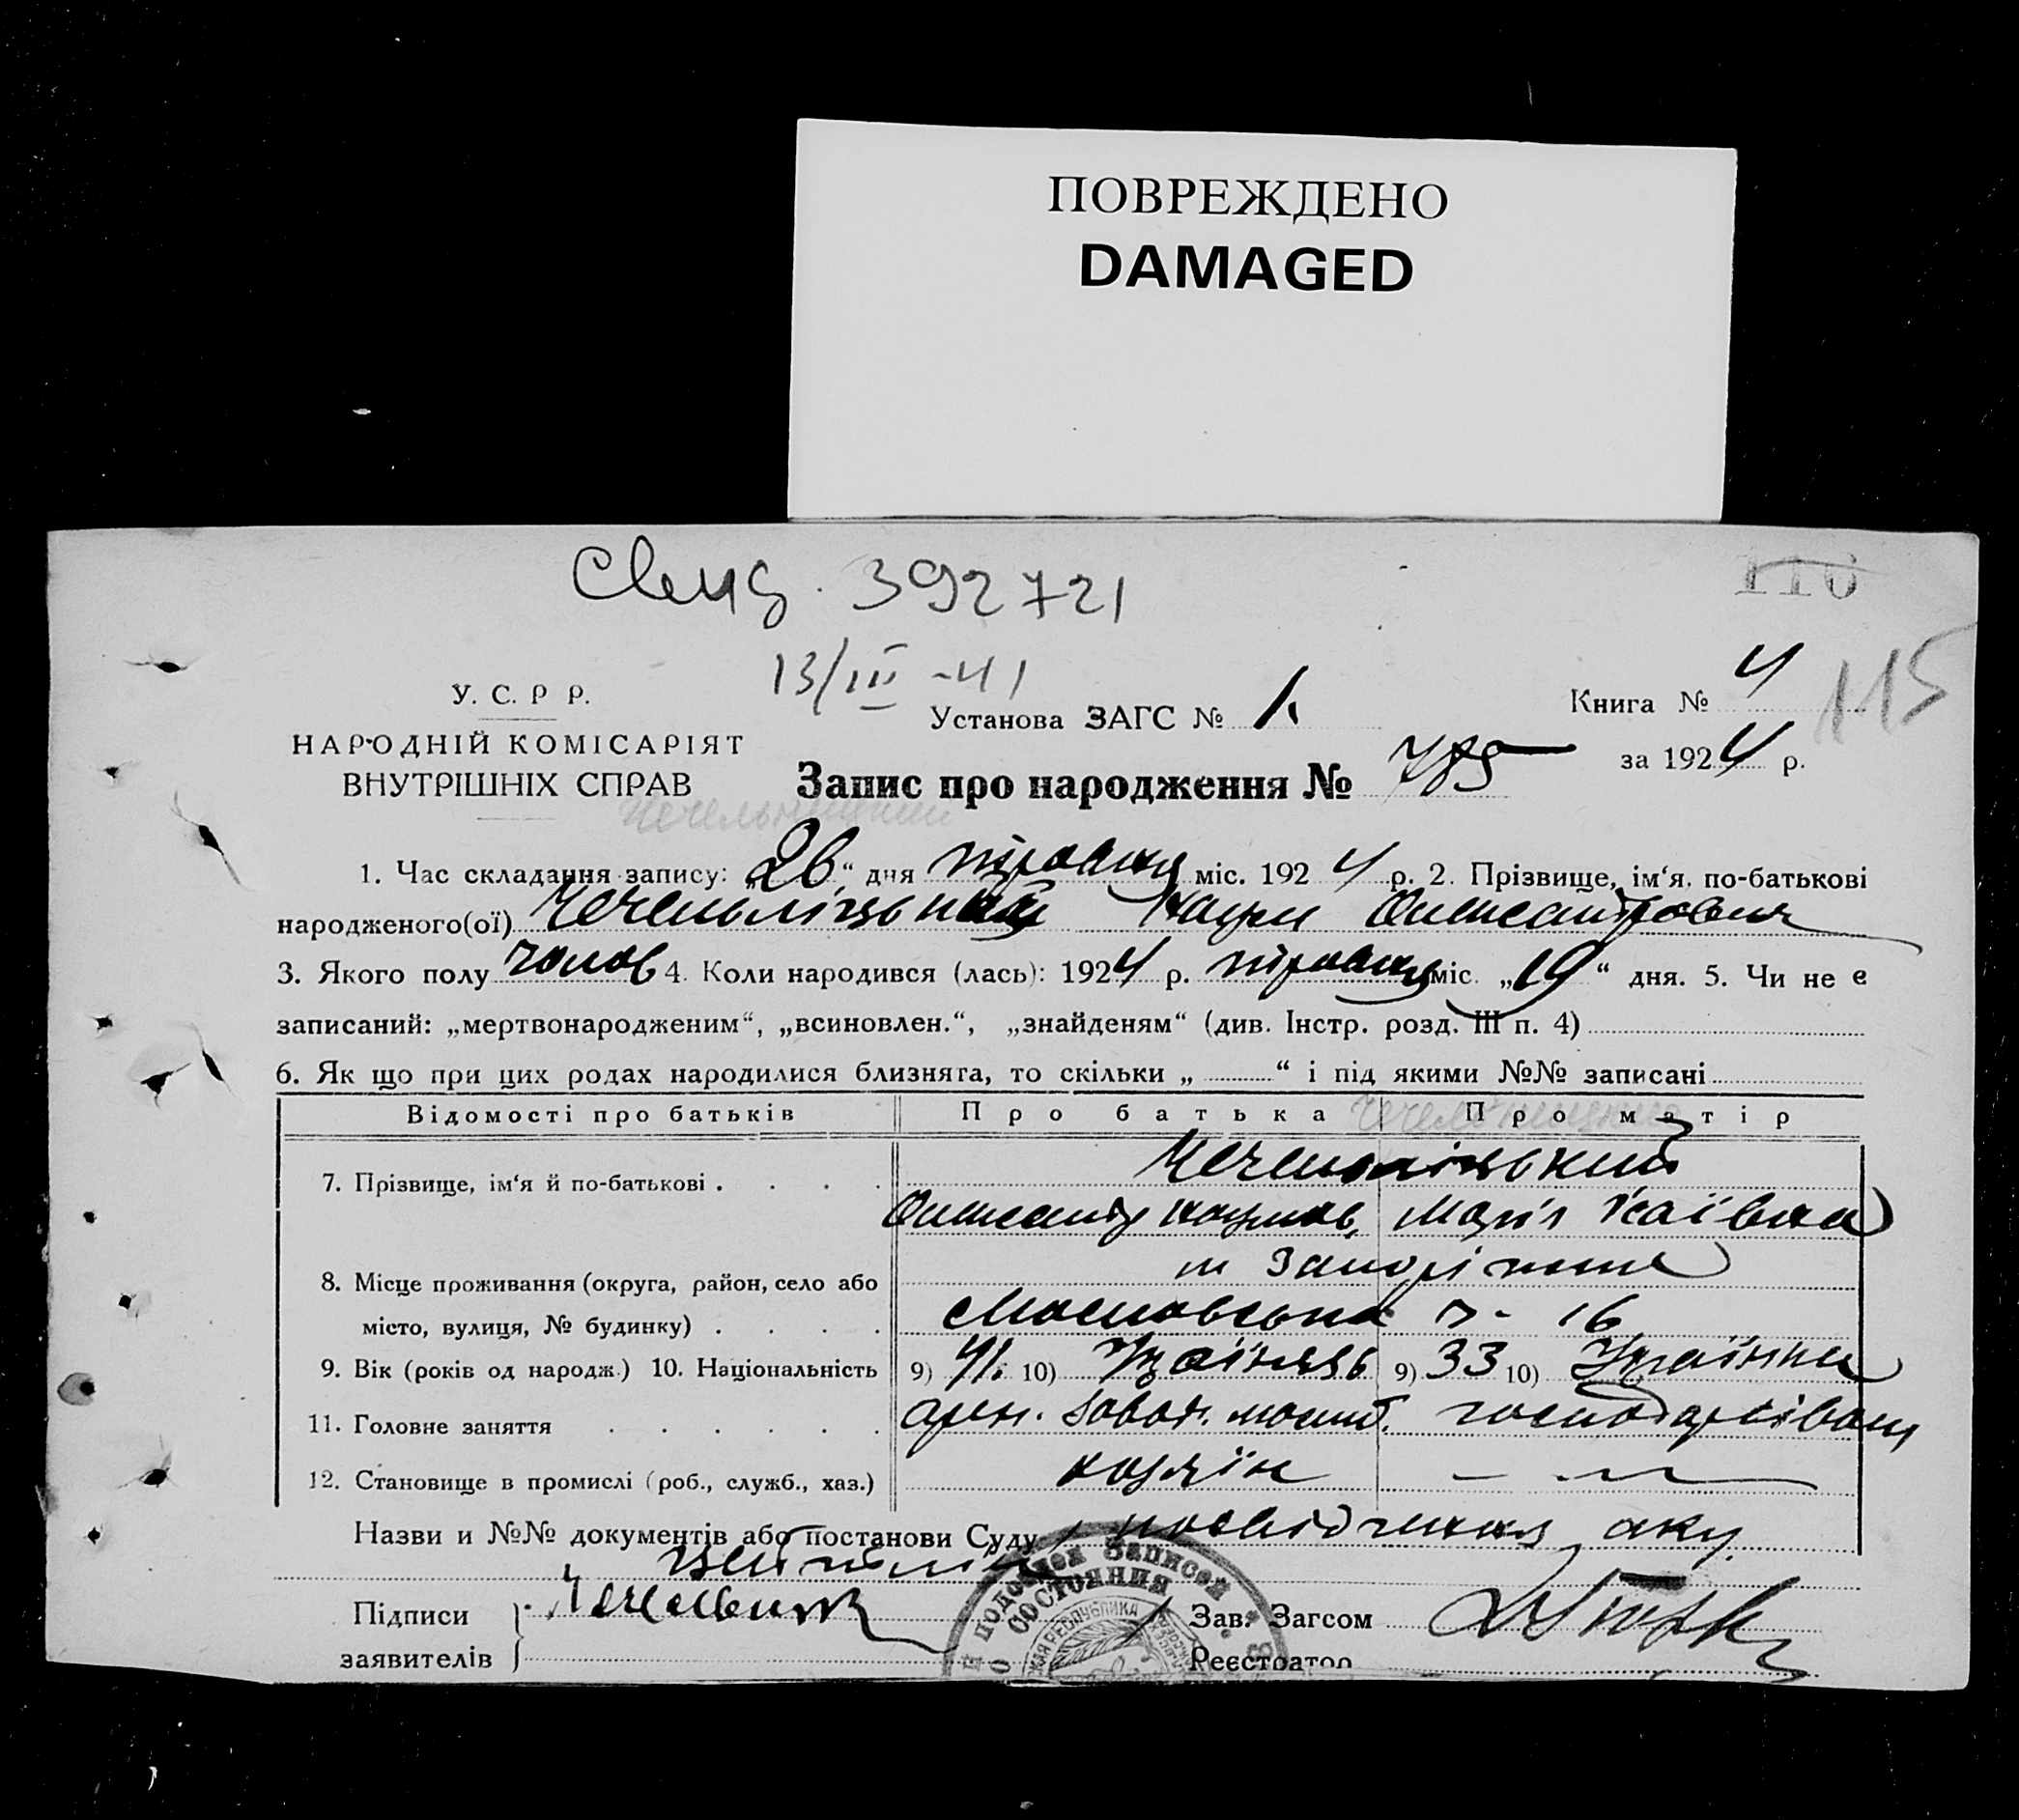 ПОВРЕЖДЕНО
DAMAGED
Свид. 392721
110
13/III -41
115
У. С. Р Р.
Установа ЗАГС № 1
Книга № 4
НАРОДНІЙ КОМІСАРІЯТ
за 1924 р.
ВНУТРІШНІХ СПРАВ
Запис про народження № 785
1. Час складання запису: „26“ дня травня міс. 1924 р. 2. Прізвище, ім‘я, по-батькові
народженого(ої) Олександрович
3. Якого полу чолов 4. Коли народився (лась): 1924 р. травня міс. „19“ дня. 5. Чи не є
записаний: „мертвонародженим“, „всиновлен.“, „знайденям“ (див. Інстр. розд. III п. 4)
6. Як що при цих родах народилися близняга, то скільки „ “ і під якими №№ записані
Відомості про батьків Про батька Про матір
7. Прізвище, ім‘я й по-батькові
Олександр Наумов. Марія Ісаївна
м Запоріжжє
8. Місце проживання (округа, район, село або
місто, вулиця, № будинку) Московська 16
9. Вік (років од народж.) 10. Національність 9) 41. 10) Українець 9) 33 10) Українка
11. Головне заняття арен.
12. Становище в промислі (роб., служб., хаз.) хазяїн
Назви и №№ документів або постанови Суду посвідчення аку
Підписи
заявителів
Зав. Загсом
Реєстратор
подотдел Записей
СОСТОЯНИЯ